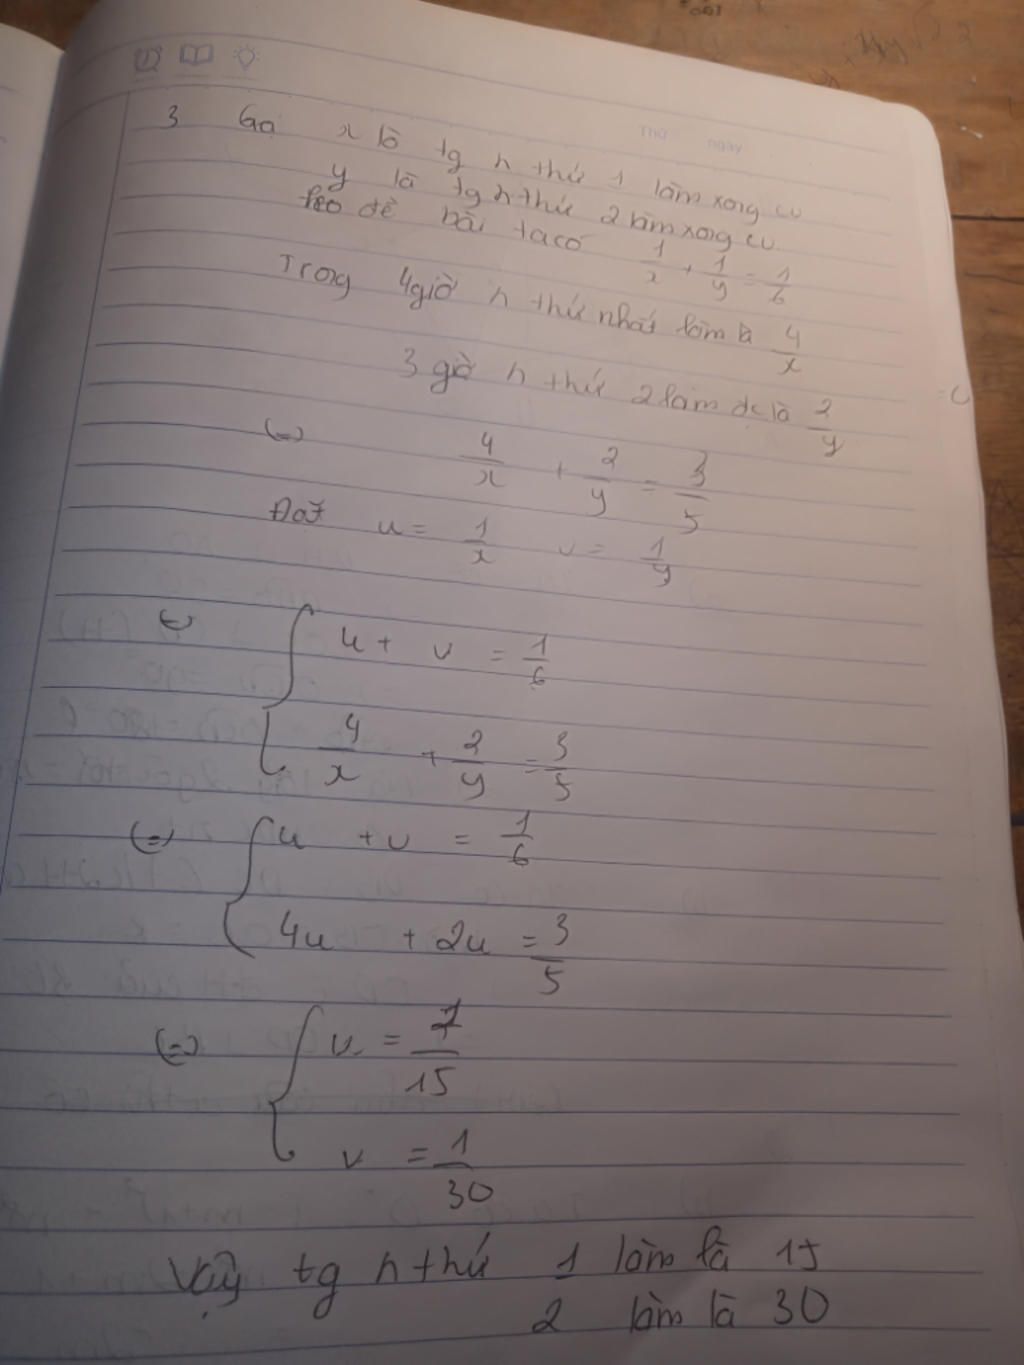 Thứ ngày
3 Gọi x là tg n thứ 1 làm xong cv
y là tg n thứ 2 làm xong cv
theo đề bài ta có 1/x + 1/y = 1/6
Trong 4 giờ n thứ nhất làm là 4/x
3 giờ n thứ 2 làm đc là 2/y
(=) 4/x + 2/y = 3/5
Đặt u = 1/x v = 1/y
{ u + v = 1/6
4/x + 2/y = 3/5
(=) { u + v = 1/6
4u + 2u = 3/5
(=) { u = 1/15
v = 1/30
Vậy tg n thứ 1 làm là 15
2 làm là 30